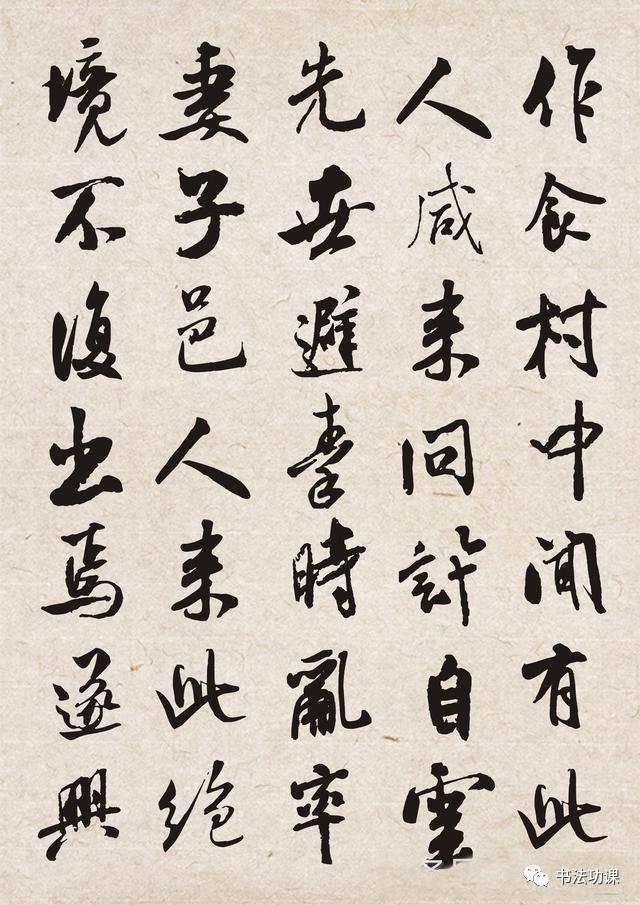 作食村中聞有此
人咸来問訊自雲
先世避秦時亂率
妻子邑人来此絶
境不復出焉遂與
书法功课